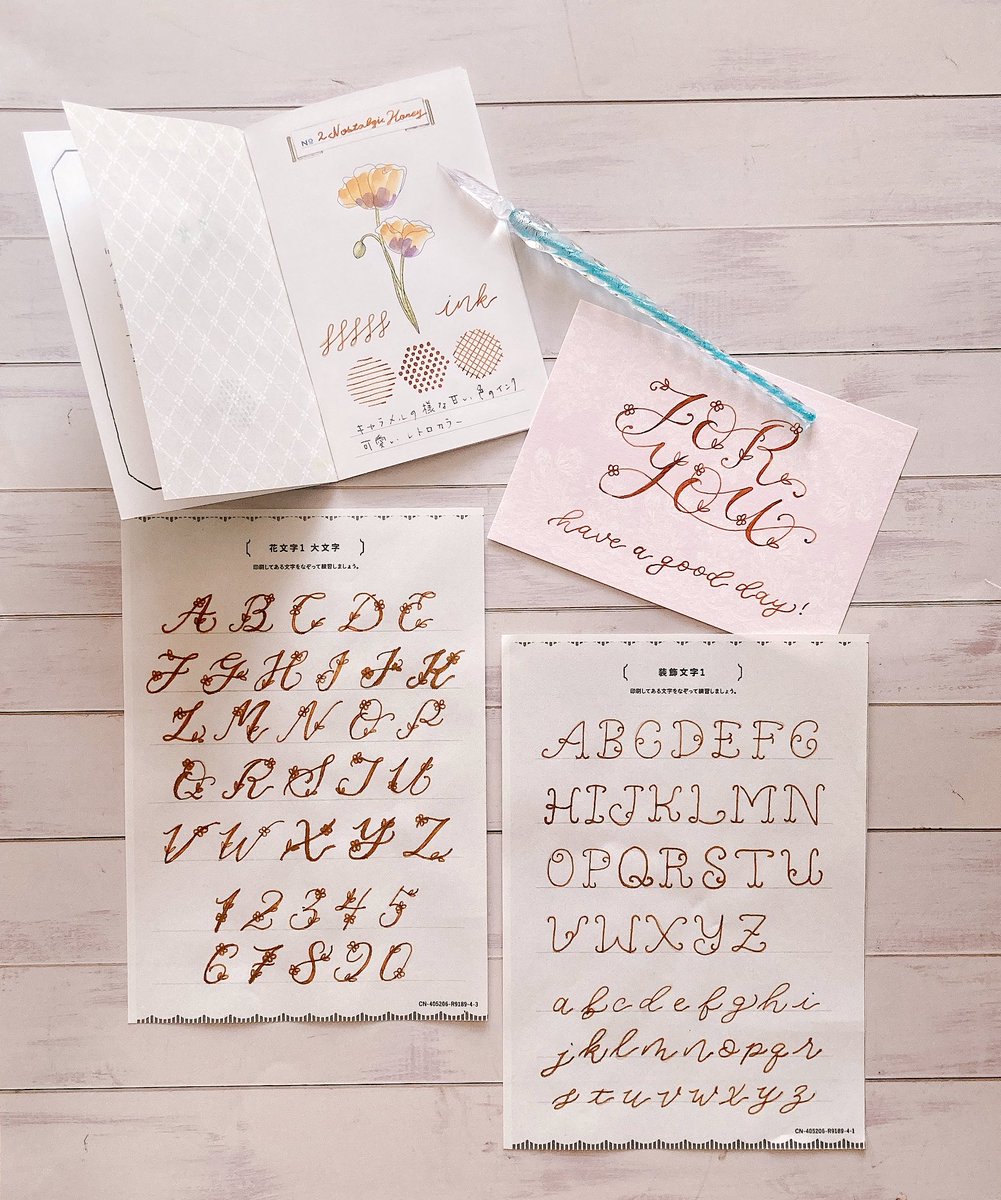 № 2 Nostalgic Honey
ink
キャラメルの様な甘い色のインク
可愛いレトロカラー
FOR
YOU
have a good day!
花文字1 大文字
印刷してある文字をなぞって練習しましょう。
A B C D E
F G H I J K
L M N O P
Q R S T U
V W X Y Z
1 2 3 4 5
6 7 8 9 0
CN-405206-R9189-4-3
装飾文字1
印刷してある文字をなぞって練習しましょう。
A B C D E F G
H I J K L M N
O P Q R S T U
V W X Y Z
a b c d e f g h i
j k l m n o p q r
s t u v w x y z
CN-405206-R9189-4-1